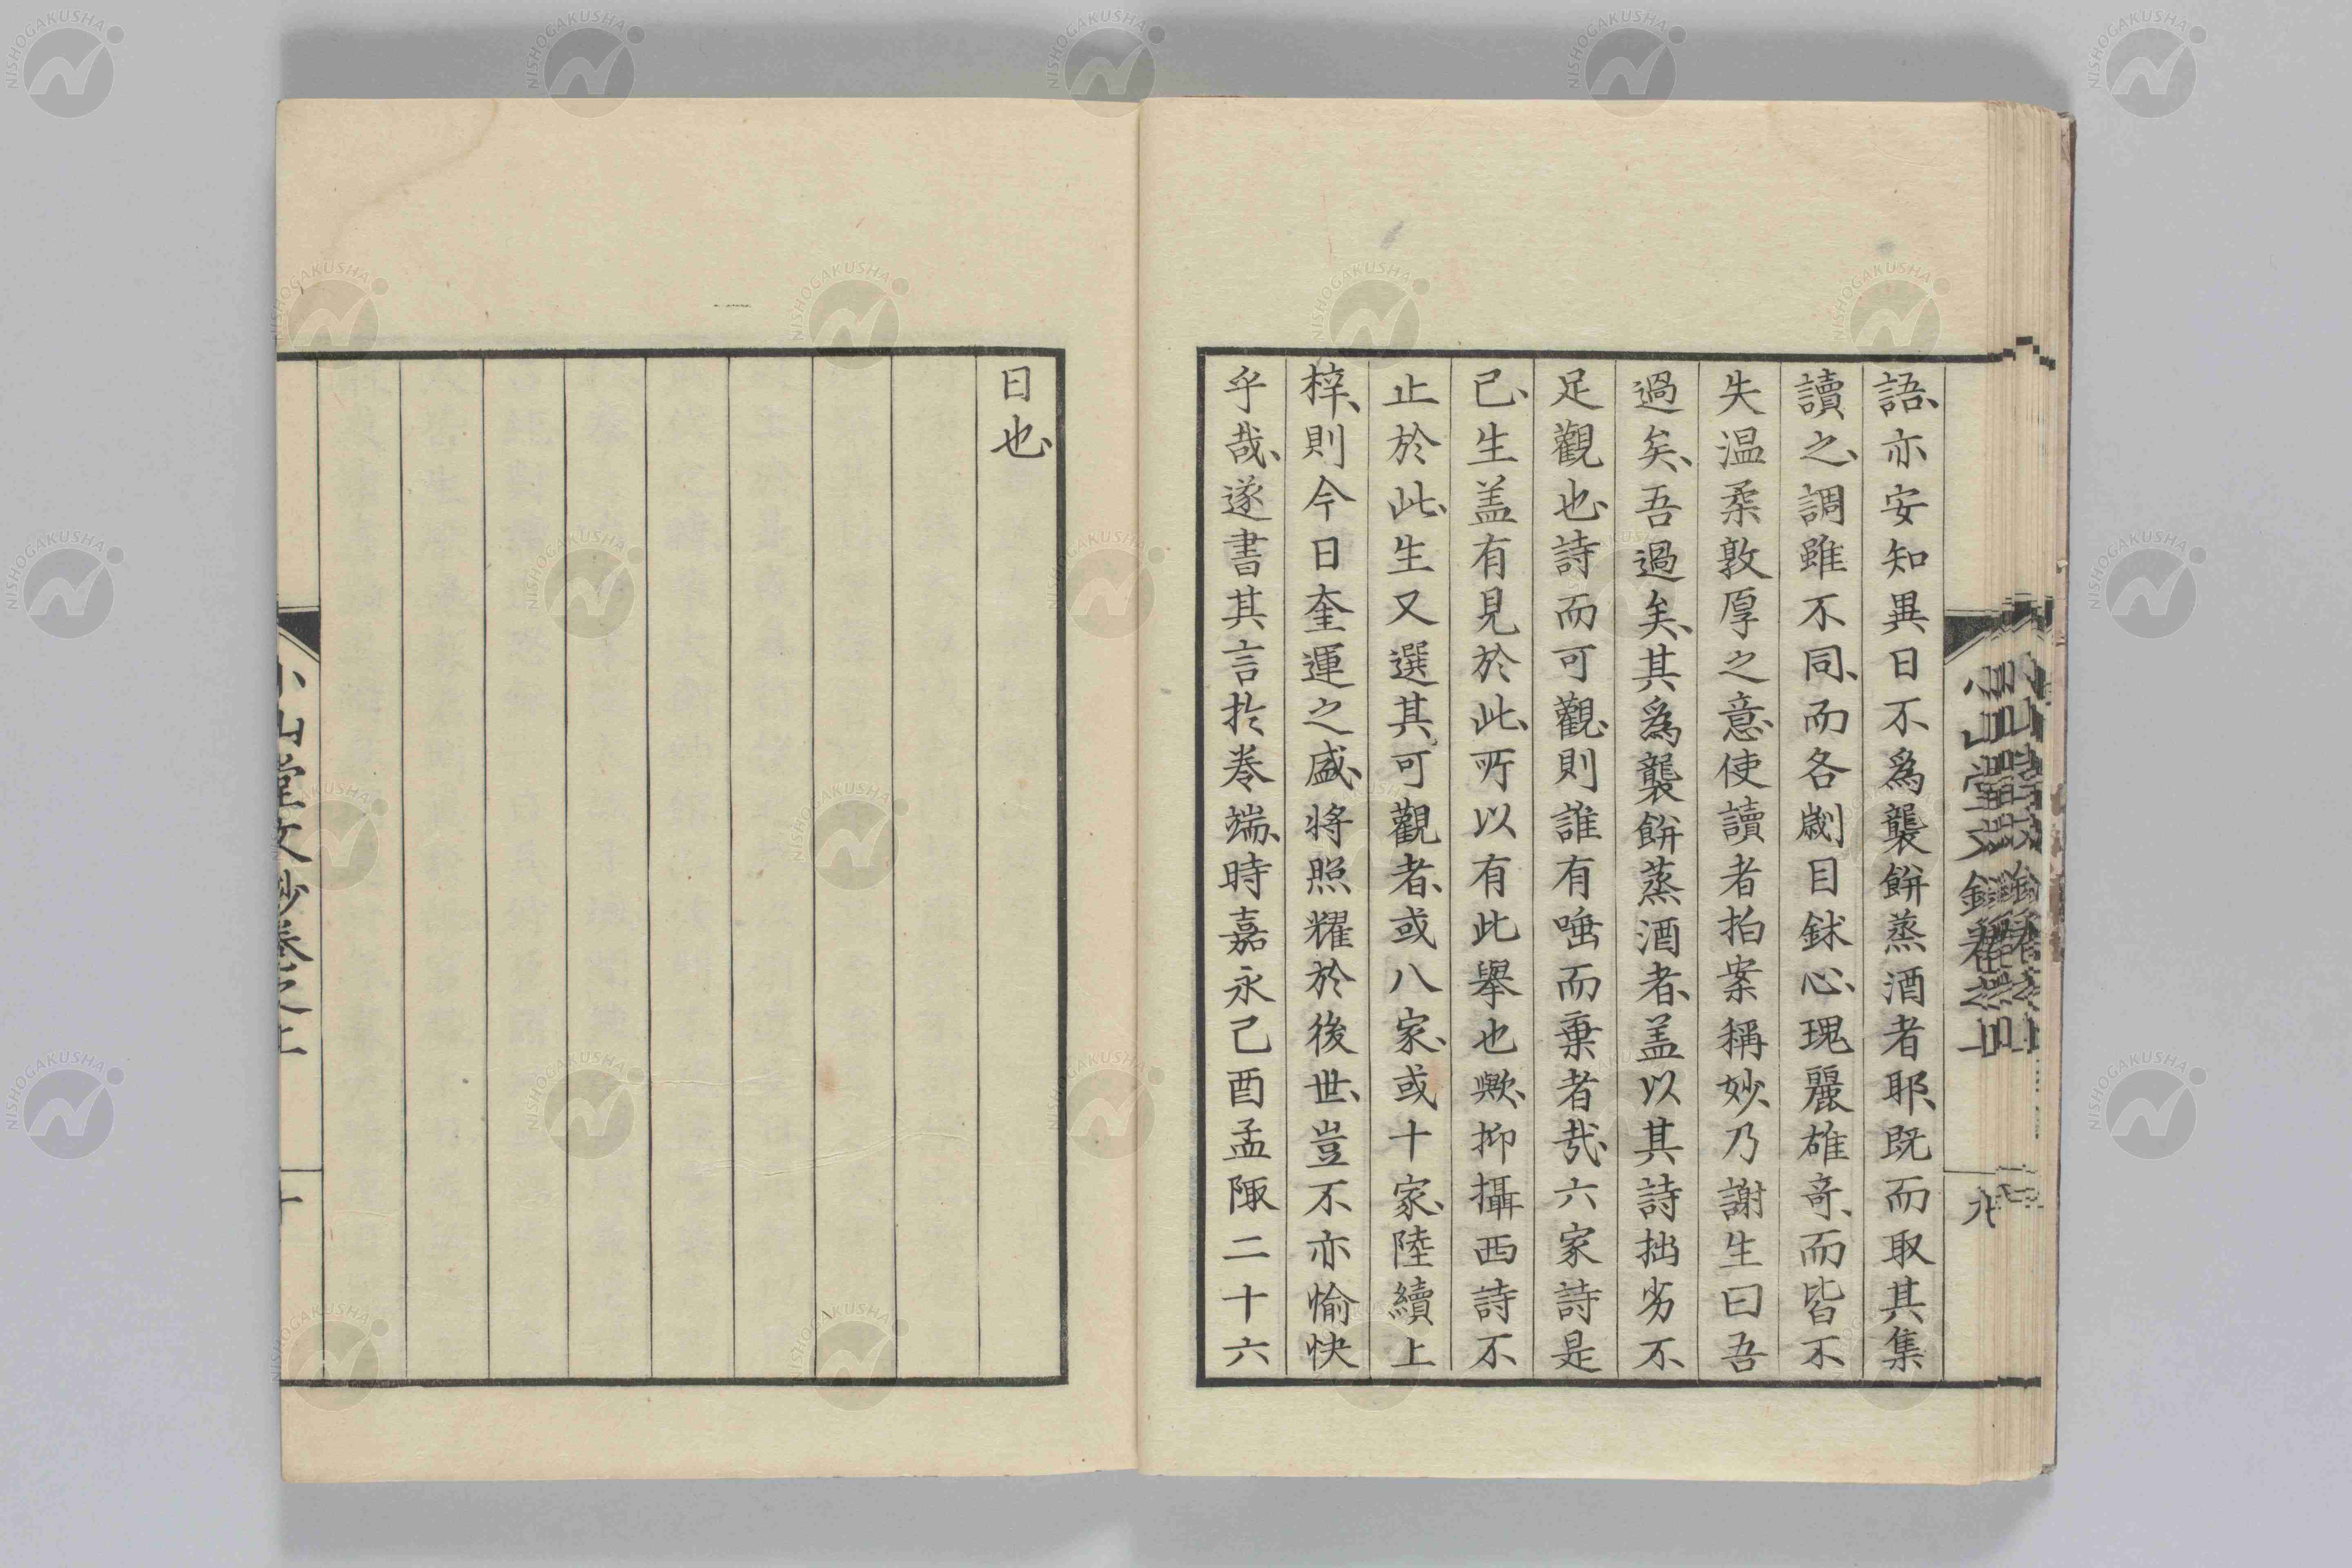 語、亦安知異日不爲襲餅蒸酒者耶、既而取其集
讀之、調雖不同、而各劌目鉥心、瑰麗雄奇、而皆不
失温柔敦厚之意、使讀者拍案稱妙、乃謝生曰吾
過矣、吾過矣、其爲襲餅蒸酒者、盖以其詩拙劣不
足觀也、詩而可觀、則誰有唾而棄者哉、六家詩是
已、生盖有見於此、所以有此擧也歟、抑攝西詩不
止於此、生又選其可觀者、或八家、或十家、陸續上
梓、則今日奎運之盛、將照耀於後世、豈不亦愉快
乎哉、遂書其言於巻端、時嘉永己酉孟陬二十六
日也
小山堂文鈔巻之上
九
小山堂文鈔巻之上
十